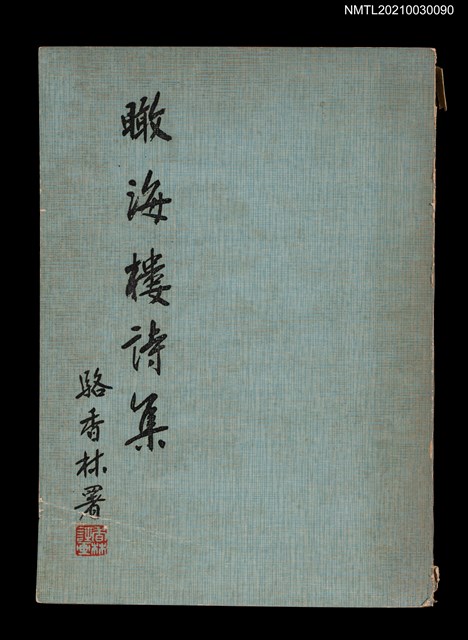 NMTL20210030090
瞰海樓詩集
駱香林署